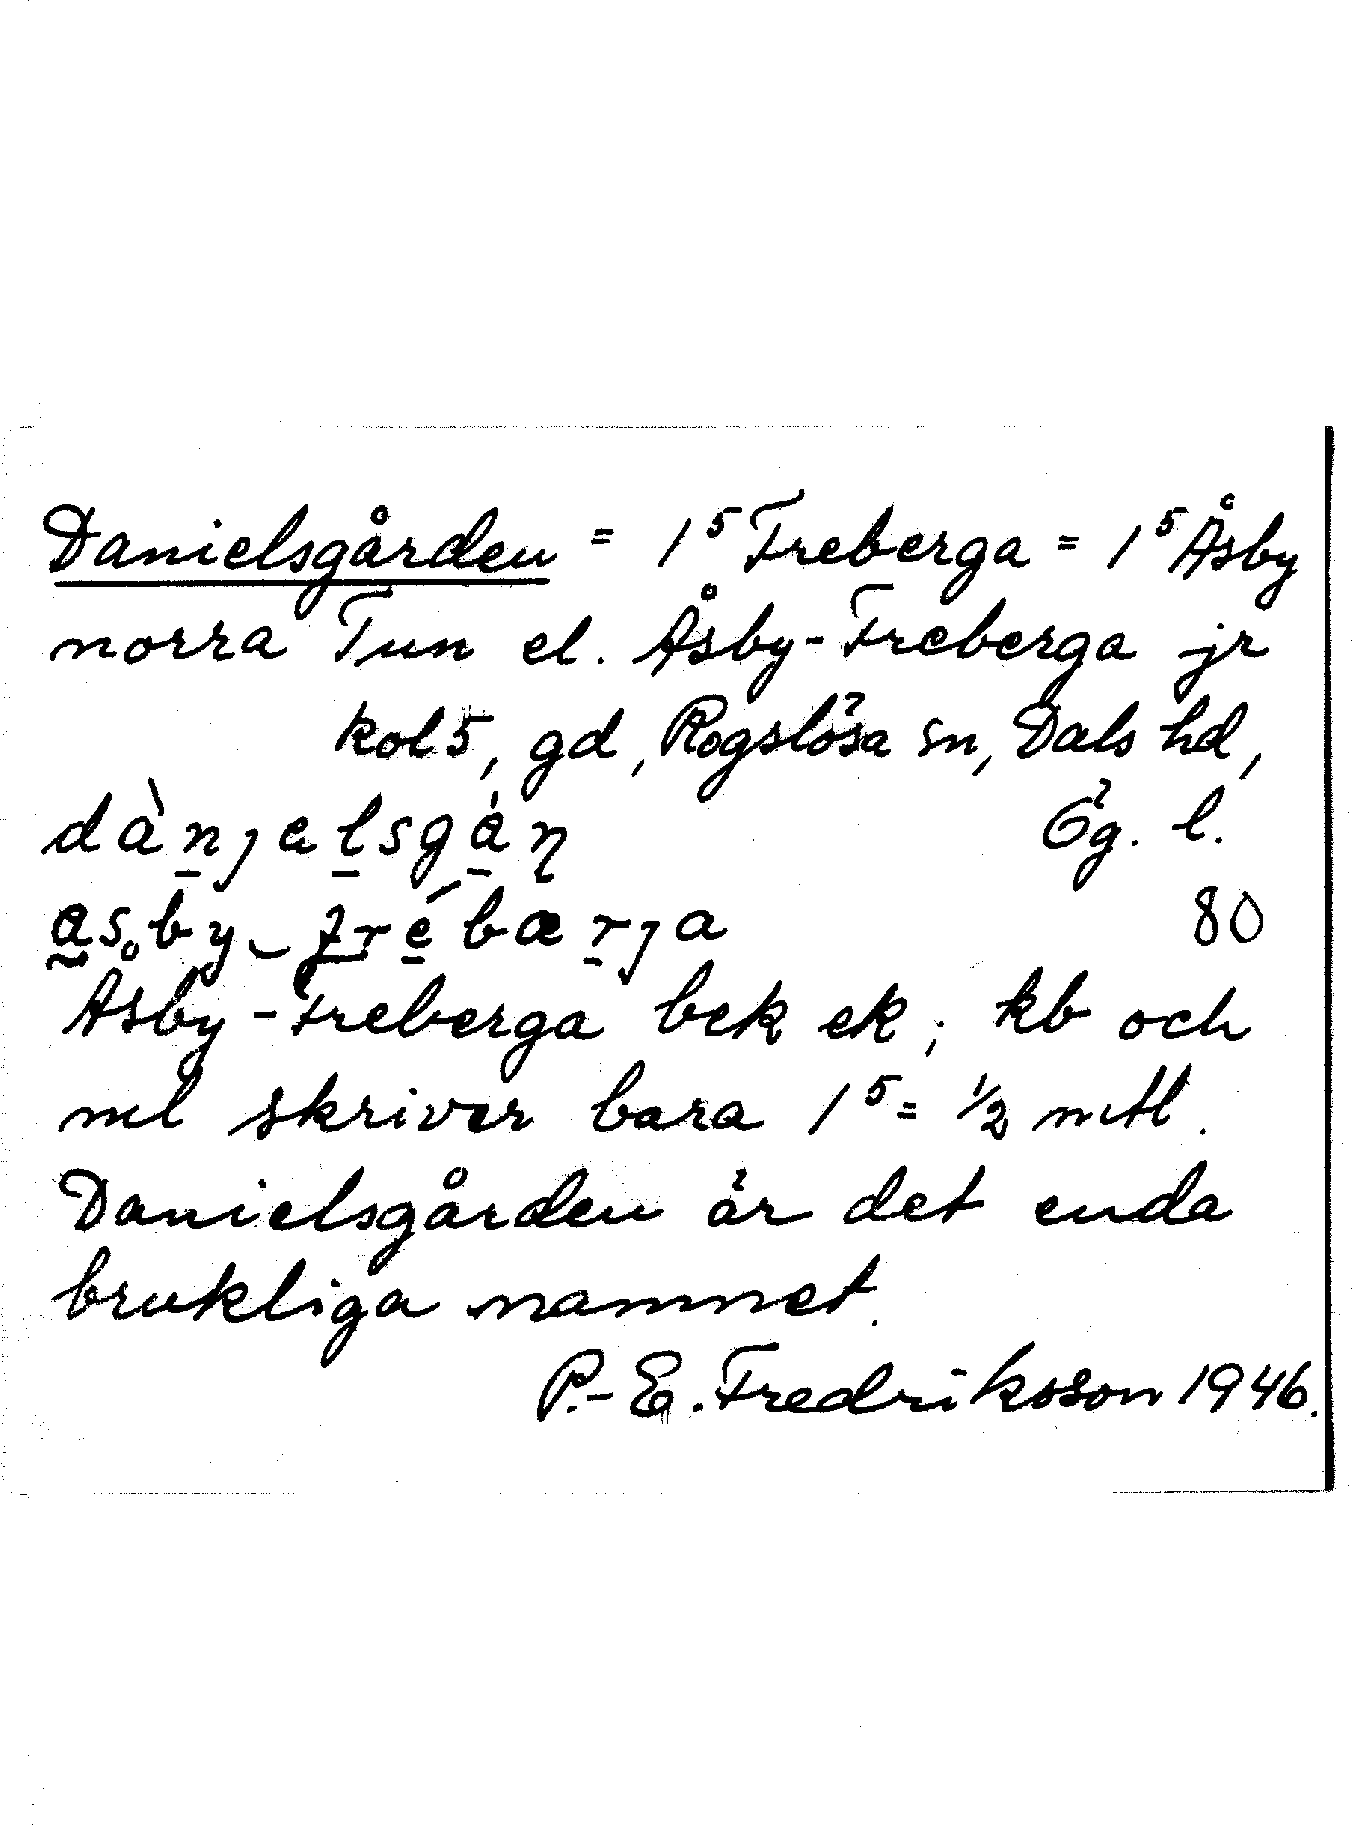 Danielsgården = 1⁵ Freberga = 1⁵ Åsby
norra Tun el. Åsby-Freberga jr
kol 5, gd, Rogslösa sn, Dals hd,
dànjalsgán̩ Ög. l.
asby-frébærja 80
Åsby-Freberga bek ek; kb och
ml skriver bara 1⁵ = 1/2 mtl.
Danielsgården är det enda
brukliga namnet.
P.-E. Fredriksson 1946.